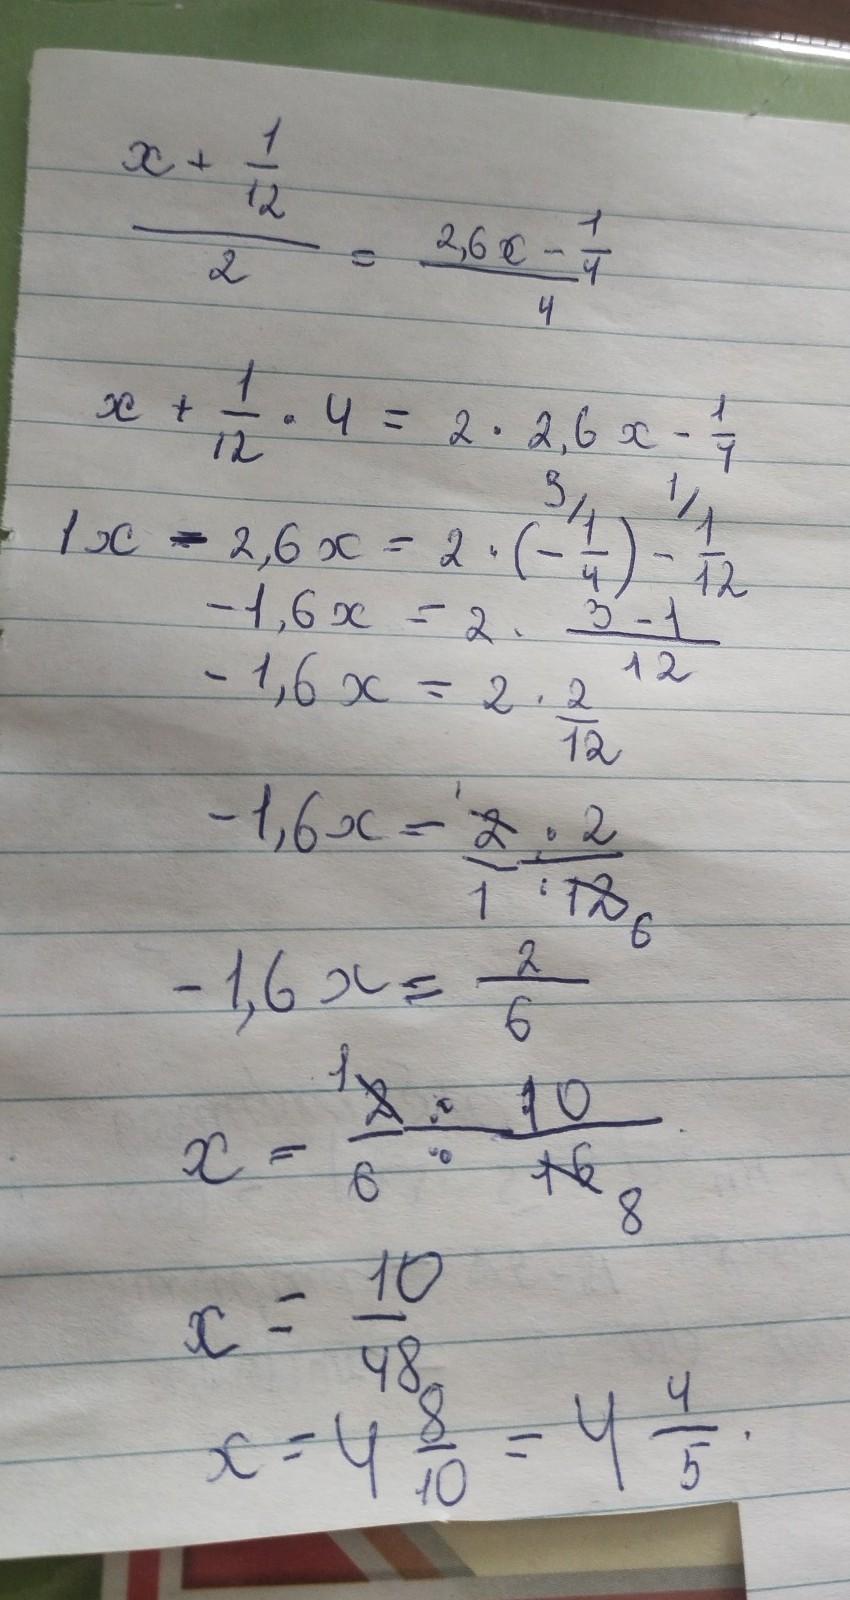 x + 1/12 / 2 = 2,6x - 1/4 / 4
x + 1/12 · 4 = 2 · 2,6x - 1/4
1x - 2,6x = 2 · (- 1/4) - 1/12
-1,6x = 2 · 3-1/12
-1,6x = 2 · 2/12
-1,6x = 2 · 2 / 1 · 12 6
-1,6x = 2/6
x = 1 2 : 10 / 6 : 16 8
x = 10/48
x = 4 8/10 = 4 4/5.